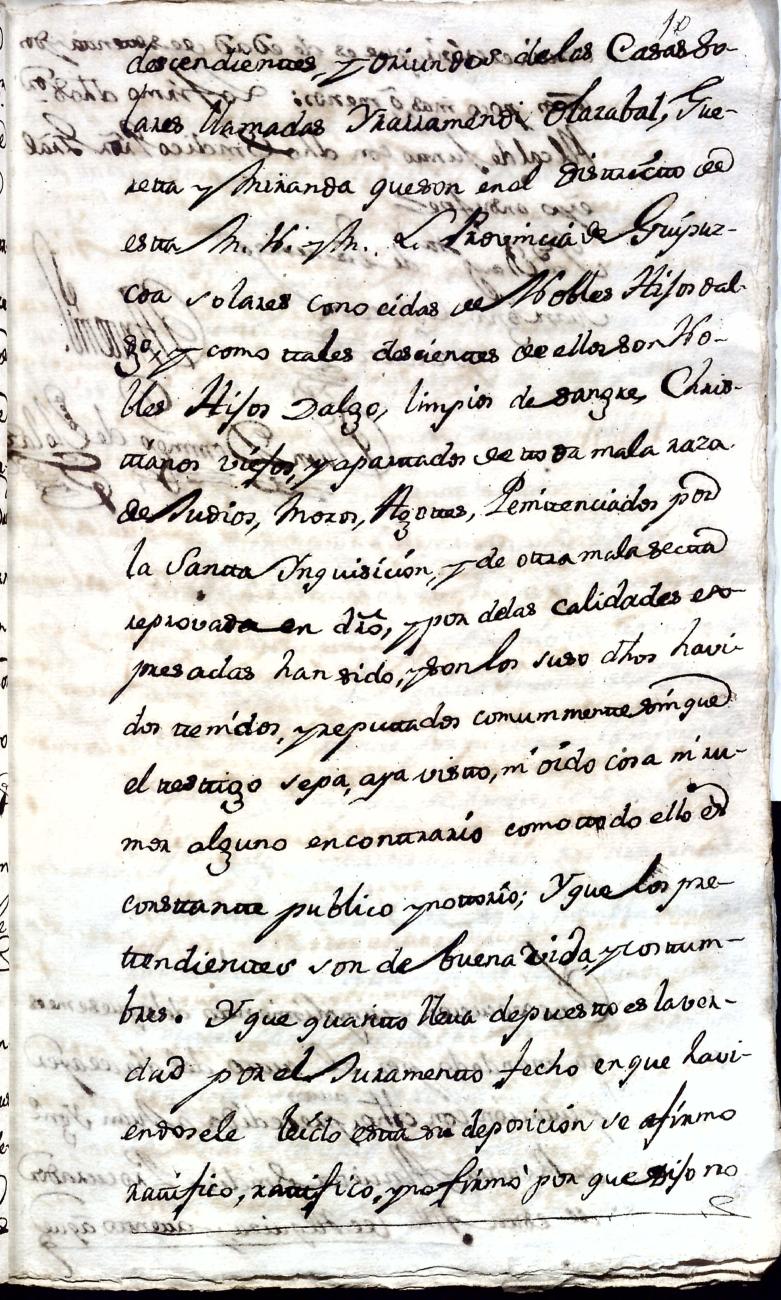 10
descendientes, y oriundos de las Casas so-
lares llamadas Yrarramendi Olazabal, Gue-
retta y Miranda que son en el Districtto de
estta M. N. y M. L. Provincia de Guipuz-
coa solares conocidas de Nobles Hijos dal-
go, y como ttales descientes de ellos son No-
bles Hijos Dalgo, limpios de sangre, Chris-
ttianos viejos, y aparttados de ttoda mala raza
de Judios, Moros, Agottes, Penitenciados por
la Santta Ynquisición, y de ottra mala sectta
reprovada en dro, y por delas calidades exp-
presadas han sido, y son los suso dhos havi-
dos ttenidos, y reputtados comunmentte sin que
el testtigo sepa, aya vistto, ni oido cosa ni ru-
mor alguno en conttrario como ttodo ello es
consttantte publico y nottorio; Y que los pre-
ttendienttes son de buena vida, y costtum-
bres. Y que quantto lleva depuestto es la ver-
dad por el Juramentto fecho en que havi-
endosele leido estta su deposición se afirmo
rattifico, rattifico, y no firmó por que dijo no